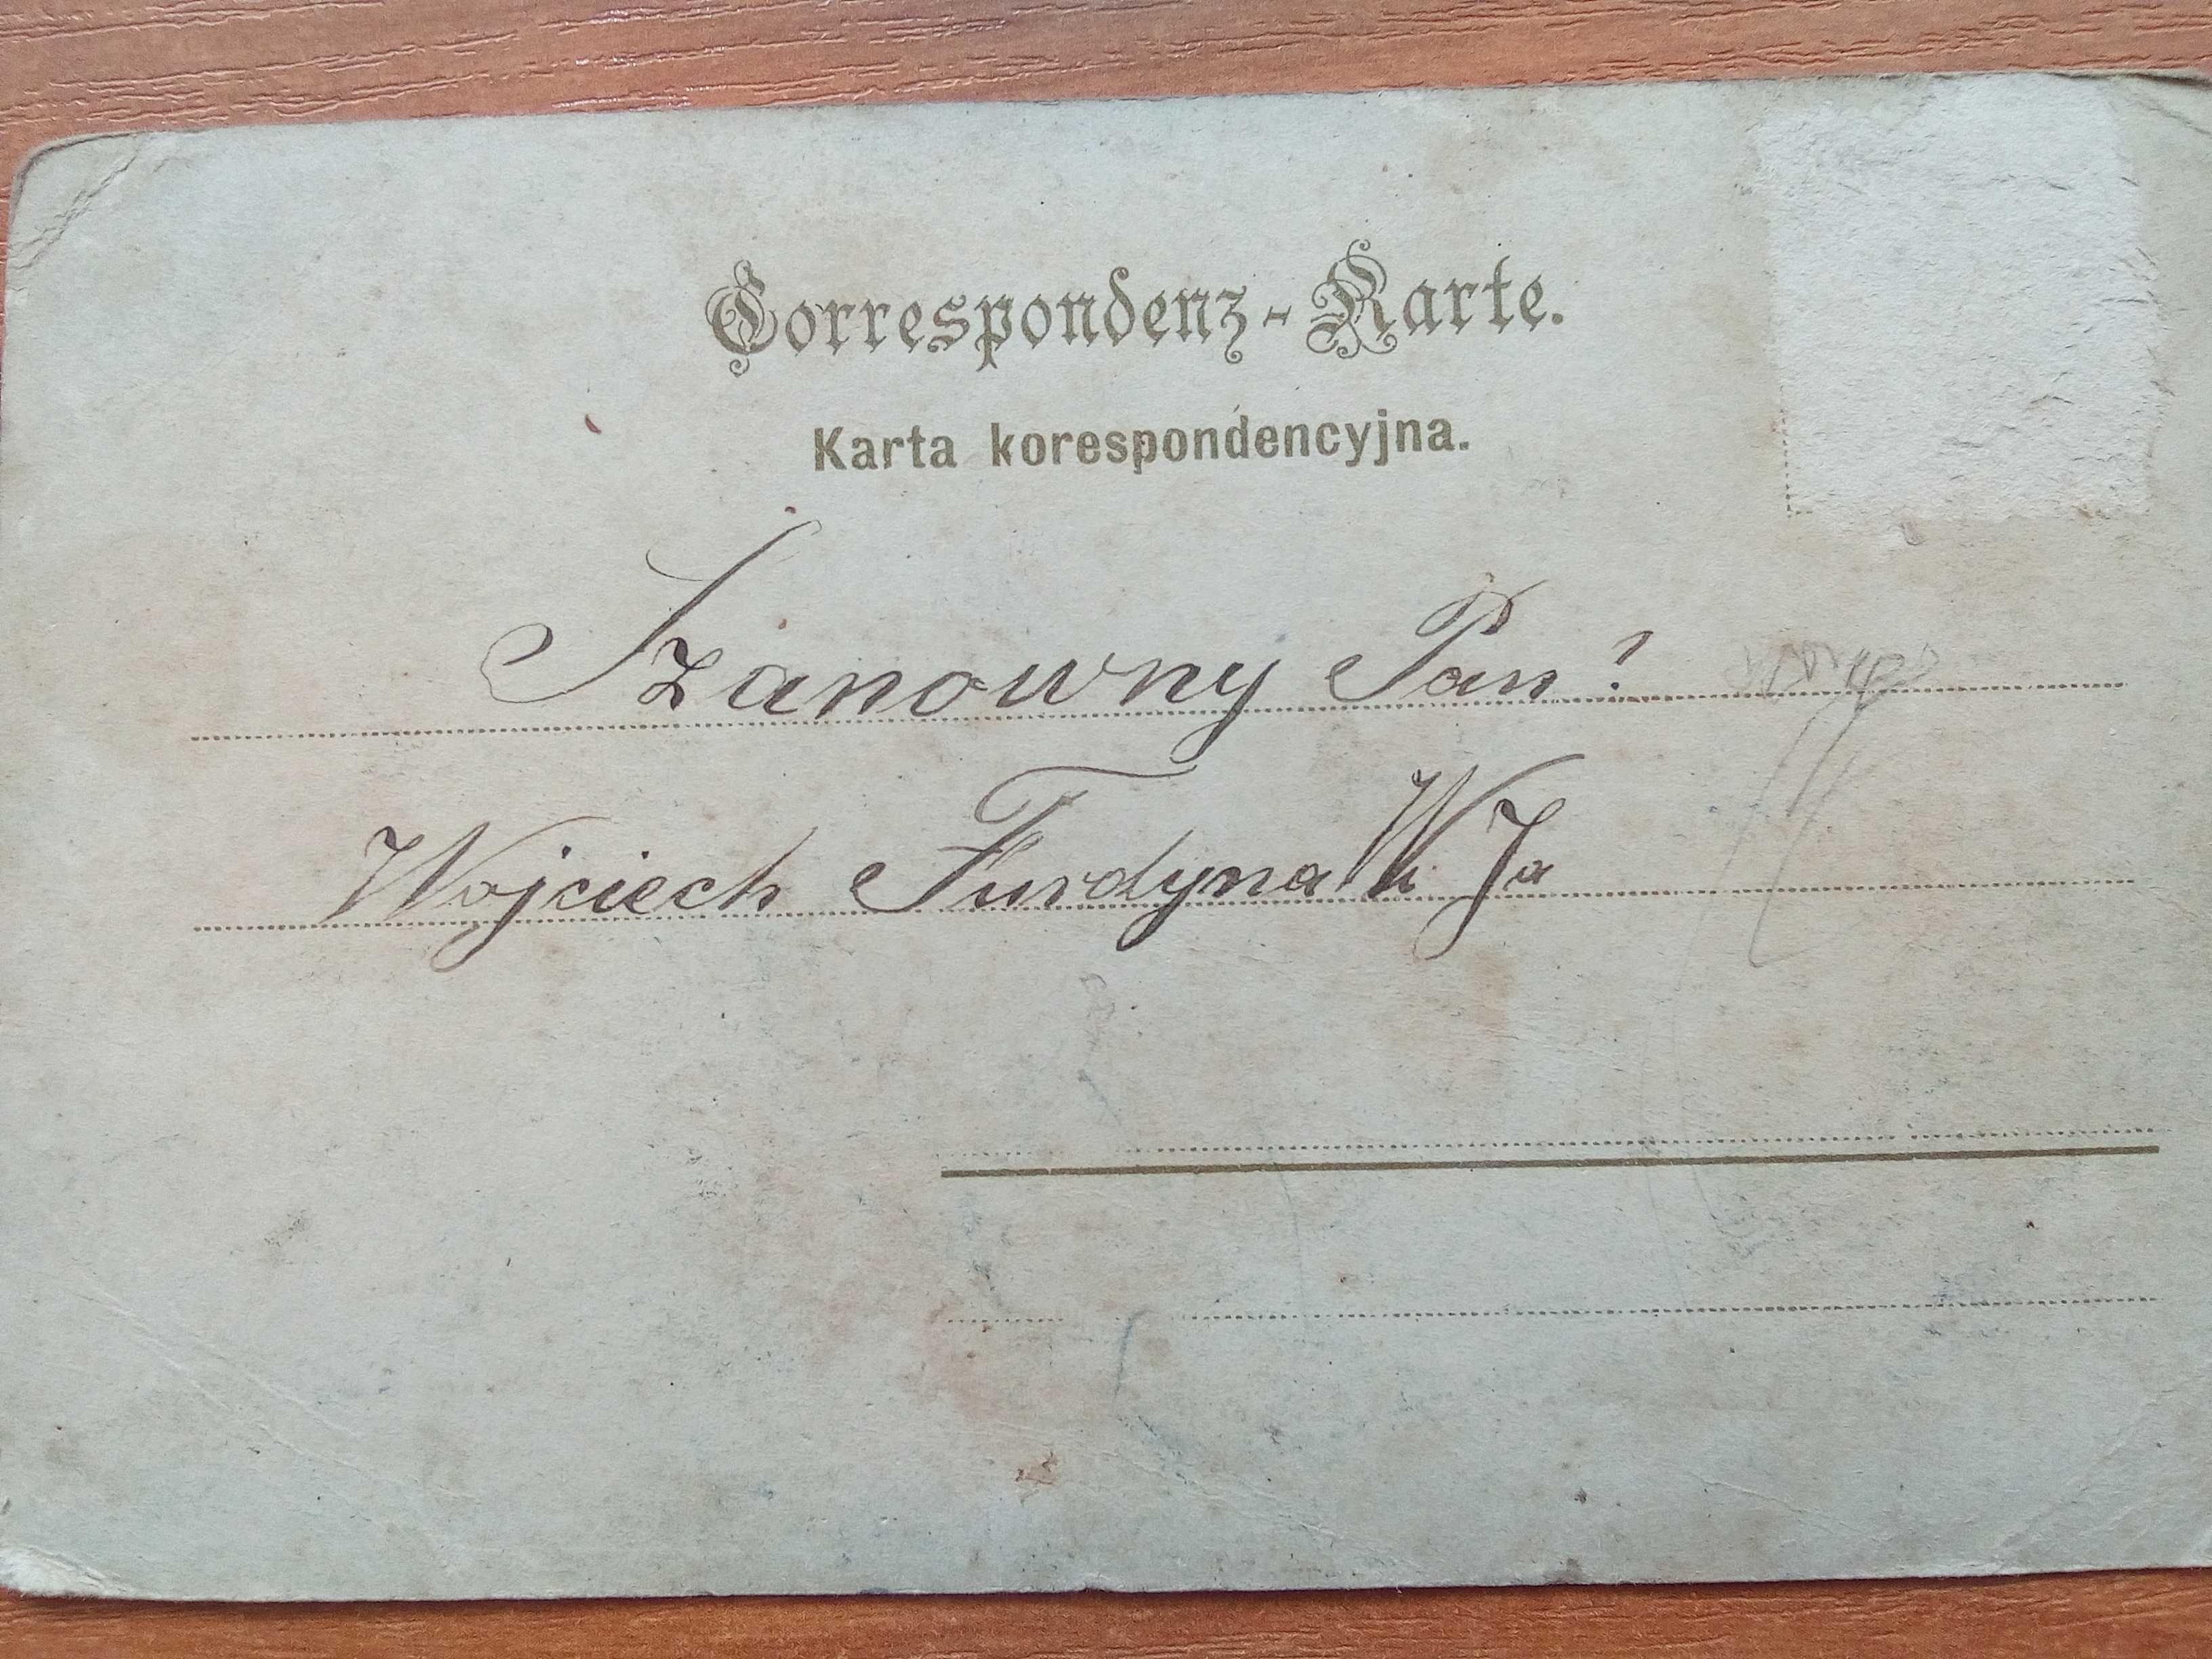 Correspondenz-Karte.
Karta korespondencyjna.
Szanowny Pan!
Wojciech Furdyna W Ja